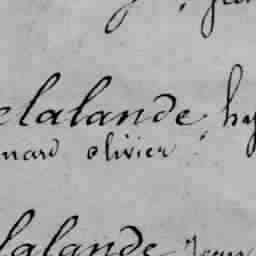 elalande, hy
nard olivier
lalande Jean